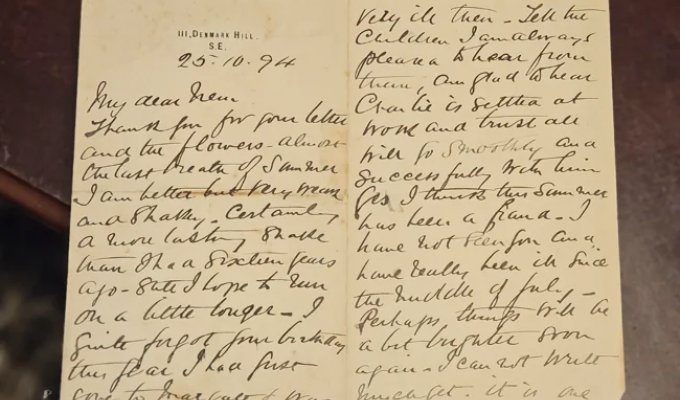 111, DENMARK HILL,
S.E.
25.10.94
My dear
Thank you for your letter
and the flowers - almost
the last breath of Summer
I am better but very weak
and Shaky - Certainly
a more lasting Shake
than I had Sixteen years
ago - Still I hope to run
on a little longer - I
quite forgot your birthday
this year I had just
gone to Margate & was
very ill then - Tell the
Children I am always
pleased to hear from
them, am glad to hear
Charlie is settled at
work and trust all
will go Smoothly and
successfully with him
Yes I think this Summer
has been a fraud - I
have not seen you and
have really been ill since
the middle of July -
Perhaps things will be
a bit brighter soon
again - I can not write
much yet. it is one